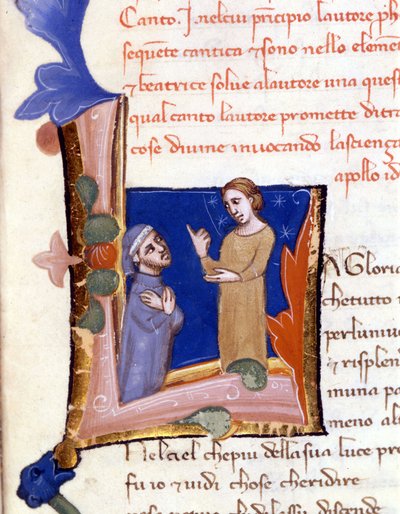 Canto. I. nel cui principio lautore ph
sequẽte cantica & sono nello elemẽ
& beatrice solve alautore una ques
qual canto lautore promette di tra
cose divine invocando la sciença
apollo id
L A Gloria
che tutto
per luniv
& risplen
in una pa
meno al
Nel ciel che piu della sua luce pr
fu io & vidi chose che ridire